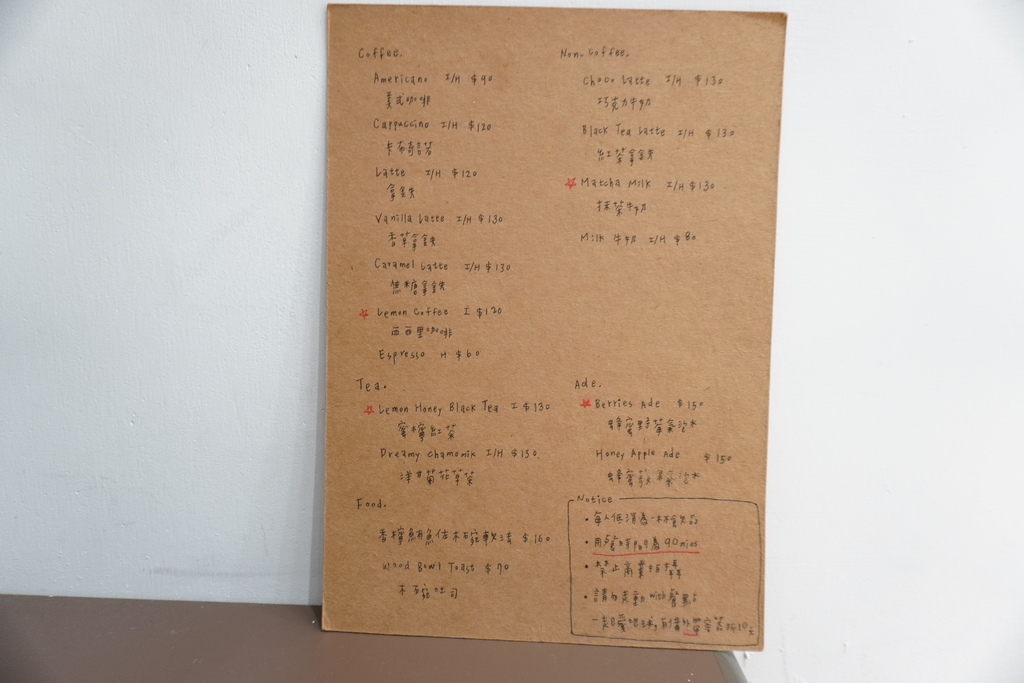 Coffee.
Americano I/H $90
美式咖啡
Cappuccino I/H $120
卡布奇諾
Latte I/H $120
拿鐵
Vanilla Latte I/H $130
香草拿鐵
Caramel Latte I/H $130
焦糖拿鐵
Lemon Coffee I $120
西西里咖啡
Espresso H $60
Tea.
Lemon Honey Black Tea I $130
蜜檸紅茶
Dreamy Chamomile I/H $130.
洋甘菊花草茶
Food.
香檸鮪魚佐木碗軟法 $160
Wood Bowl Toast $70
木碗吐司
Non. Coffee.
Choco Latte I/H $130
巧克力牛奶
Black Tea Latte I/H $130
紅茶拿鐵
Matcha Milk I/H $130
抹茶牛奶
Milk 牛奶 I/H $80
Ade.
Berries Ade $150
蜂蜜野莓氣泡水
Honey Apple Ade $150
蜂蜜蘋果氣泡水
Notice
• 每人低消為一杯飲品
• 用餐時間為90mins
• 禁止商業拍攝
• 請勿